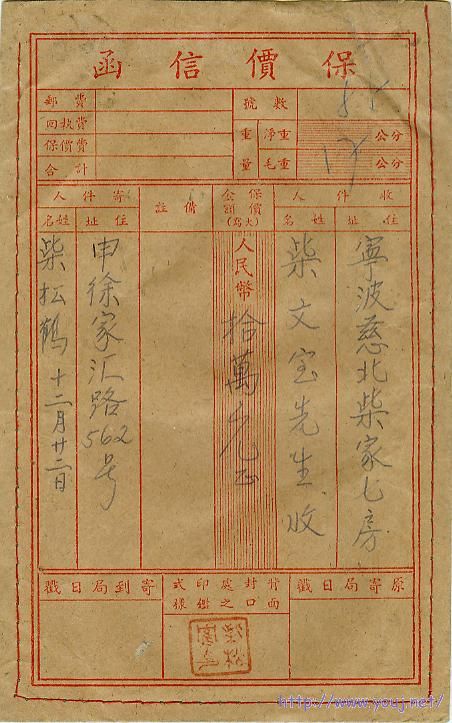 保價信函
郵費
回執費
保價費
合計
號數
重量
淨重
毛重
公分
公分
收件人
住址
姓名
保價金額(大寫)
備註
寄件人
住址
姓名
寧波慈北柴家七房
柴文宝先生收
人民幣拾萬元正
申徐家汇路562号
柴松鶴 十二月廿二日
原寄局日戳
背面封口處之印鑑式樣
寄到局日戳
http://www.youj.net/